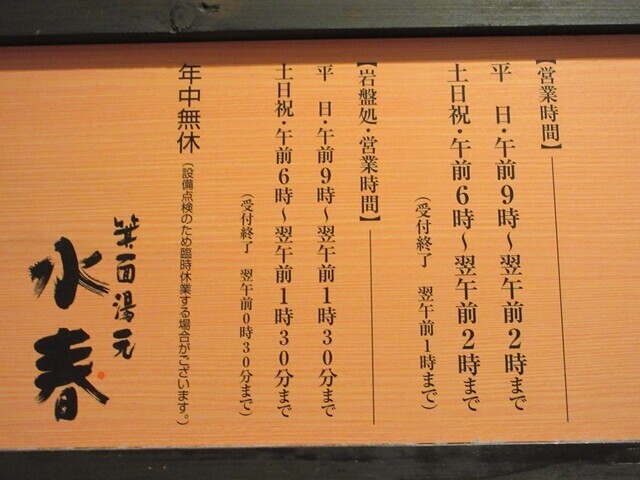 【営業時間】
平　日・午前9時〜翌午前2時まで
土日祝・午前6時〜翌午前2時まで
（受付終了　翌午前1時まで）
【岩盤処・営業時間】
平　日・午前9時〜翌午前1時30分まで
土日祝・午前6時〜翌午前1時30分まで
（受付終了　翌午前0時30分まで）
年中無休（設備点検のため臨時休業する場合がございます。）
箕面湯元
水春